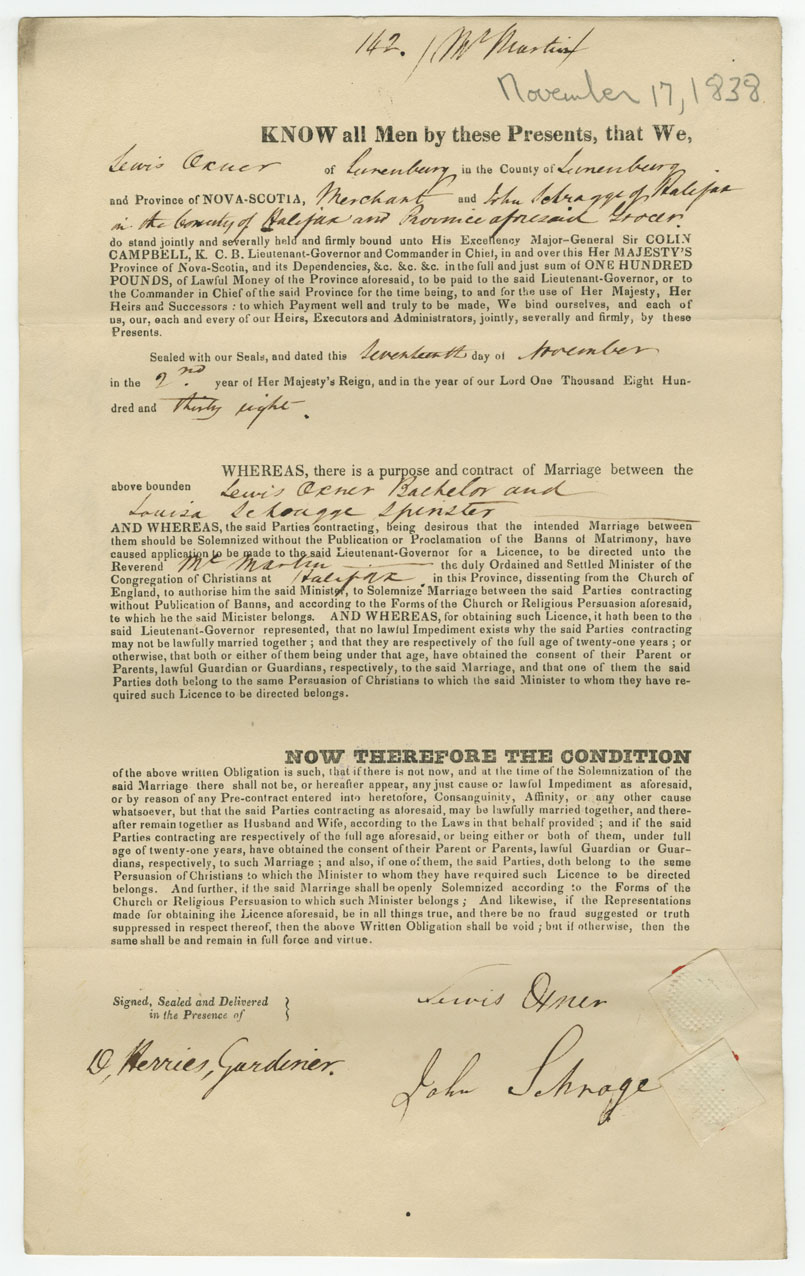 142. / Mr Martin
November 17, 1838
KNOW all Men by these Presents, that We,
Lewis Oxner of Lunenburg in the County of Lunenburg
and Province of NOVA-SCOTIA, Merchant and John Schragge of Halifax
in the County of Halifax and Province aforesaid Grocer.
do stand jointly and severally held and firmly bound unto His Excellency Major-General Sir COLIN
CAMPBELL, K. C. B. Lieutenant-Governor and Commander in Chief, in and over this Her MAJESTY'S
Province of Nova-Scotia, and its Dependencies, &c. &c. &c. in the full and just sum of ONE HUNDRED
POUNDS, of Lawful Money of the Province aforesaid, to be paid to the said Lieutenant-Governor, or to
the Commander in Chief of the said Province for the time being, to and for the use of Her Majesty, Her
Heirs and Successors : to which Payment well and truly to be made, We bind ourselves, and each of
us, our, each and every of our Heirs, Executors and Administrators, jointly, severally and firmly, by these
Presents.
Sealed with our Seals, and dated this Seventeenth day of November
in the 2nd. year of Her Majesty's Reign, and in the year of our Lord One Thousand Eight Hun-
dred and thirty eight.
WHEREAS, there is a purpose and contract of Marriage between the
above bounden Lewis Oxner Bachelor and
Louisa Schragge Spinster
AND WHEREAS, the said Parties contracting, being desirous that the intended Marriage between
them should be Solemnized without the Publication or Proclamation of the Banns of Matrimony, have
caused application to be made to the said Lieutenant-Governor for a Licence, to be directed unto the
Reverend Mr Martin the duly Ordained and Settled Minister of the
Congregation of Christians at Halifax, in this Province, dissenting from the Church of
England, to authorise him the said Minister, to Solemnize Marriage between the said Parties contracting
without Publication of Banns, and according to the Forms of the Church or Religious Persuasion aforesaid,
to which he the said Minister belongs. AND WHEREAS, for obtaining such Licence, it hath been to the
said Lieutenant-Governor represented, that no lawful Impediment exists why the said Parties contracting
may not be lawfully married together ; and that they are respectively of the full age of twenty-one years ; or
otherwise, that both or either of them being under that age, have obtained the consent of their Parent or
Parents, lawful Guardian or Guardians, respectively, to the said Marriage, and that one of them the said
Parties doth belong to the same Persuasion of Christians to which the said Minister to whom they have re-
quired such Licence to be directed belongs.
NOW THEREFORE THE CONDITION
of the above written Obligation is such, that if there is not now, and at the time of the Solemnization of the
said Marriage there shall not be, or hereafter appear, any just cause or lawful Impediment as aforesaid,
or by reason of any Pre-contract entered into heretofore, Consanguinity, Affinity, or any other cause
whatsoever, but that the said Parties contracting as aforesaid, may be lawfully married together, and there-
after remain together as Husband and Wife, according to the Laws in that behalf provided ; and if the said
Parties contracting are respectively of the full age aforesaid, or being either or both of them, under full
age of twenty-one years, have obtained the consent of their Parent or Parents, lawful Guardian or Guar-
dians, respectively, to such Marriage ; and also, if one of them, the said Parties, doth belong to the same
Persuasion of Christians to which the Minister to whom they have required such Licence to be directed
belongs. And further, if the said Marriage shall be openly Solemnized according to the Forms of the
Church or Religious Persuasion to which such Minister belongs ; And likewise, if the Representations
made for obtaining the Licence aforesaid, be in all things true, and there be no fraud suggested or truth
suppressed in respect thereof, then the above Written Obligation shall be void ; but if otherwise, then the
same shall be and remain in full force and virtue.
Signed, Sealed and Delivered
in the Presence of
Lewis Oxner
D, Herries, Gardiner.
John Schrage